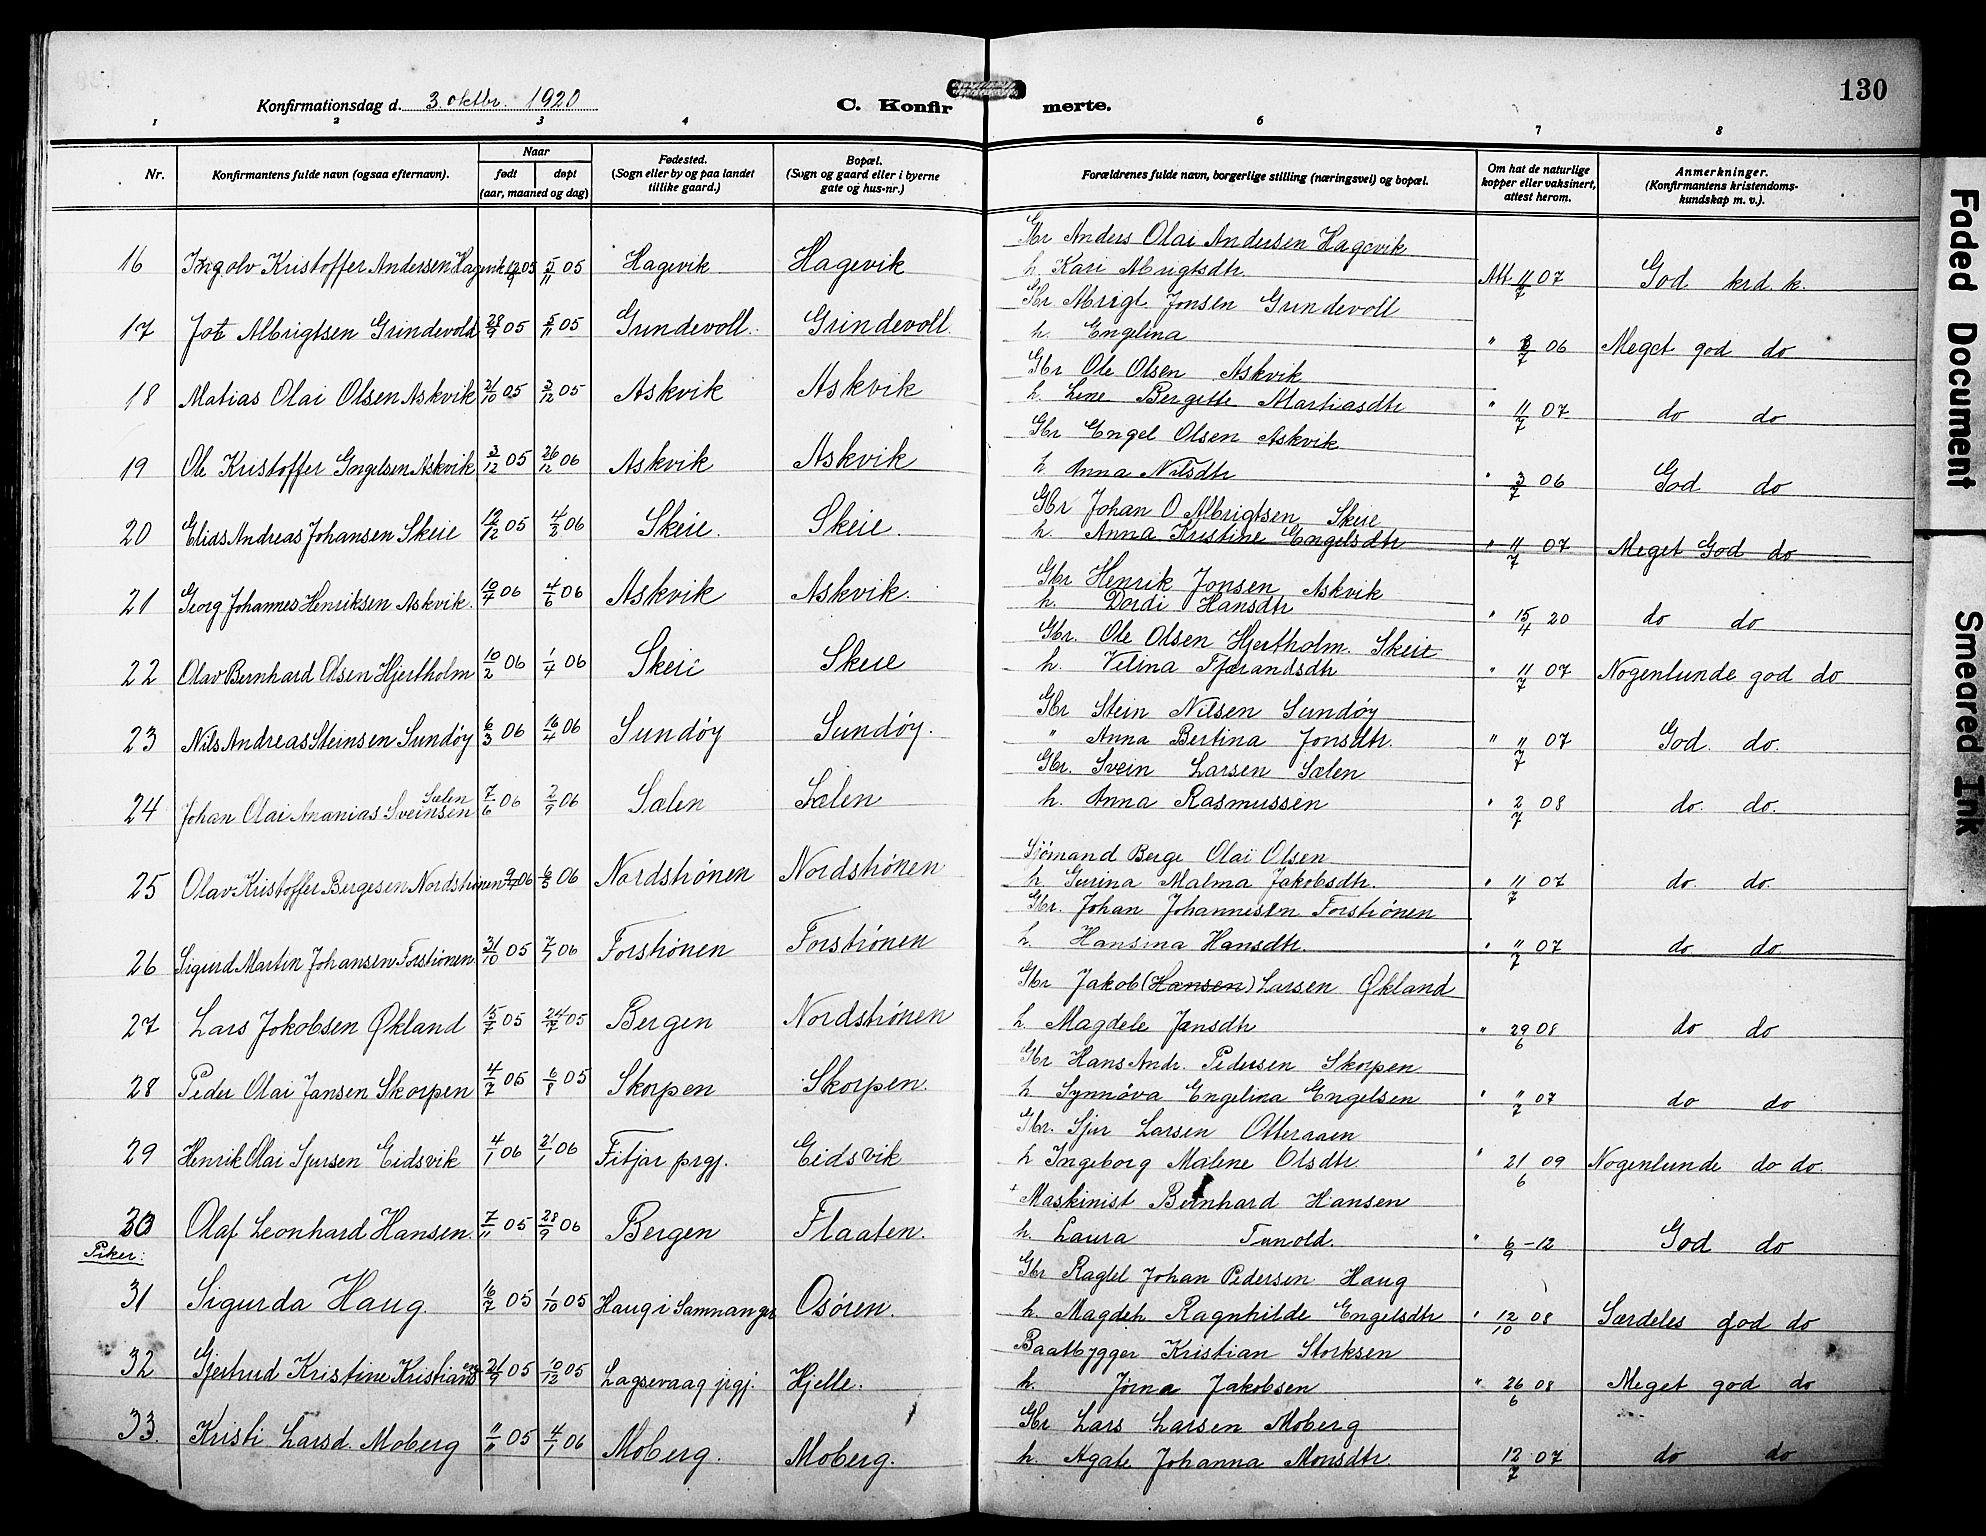 130
Konfirmationsdag d. 3. oktbr. 1920
C. Konfirmerte.
1 2 3 4 5 6 7 8
Nr.
Konfirmantens fulde navn (ogsaa efternavn).
Naar
født døpt
(aar, maaned og dag)
Fødested.
(Sogn eller by og paa landet
tillike gaard.)
Bopæl.
(Sogn og gaard eller i byerne
gate og hus-nr.)
Forældrenes fulde navn, borgerlige stilling (næringsvei) og bopæl.
Om hat de naturlige
kopper eller vaksinert,
attest herom.
Anmerkninger.
(Konfirmantens kristendoms-
kundskap m. v.).
Gbr Anders Olai Andersen Hagevik
16 Ingolv Kristoffer Andersen Hagevik 05 5/11 05 Hagevik Hagevik h. Kari Abrigtsdtr. Att 11/7 07 God krd k.
Gbr. Abrigt Jonsen Grindevoll
17 Albrigtsen Grindevold 28/9 05 5/11 05 Grindevoll. Grindevoll. h. Engelina " 3/7 06 Meget god do
Gbr Ole Olsen Askvik
18 Matias Olai Olsen Askvik 21/10 05 3/12 05 Askvik Askvik h. Lene Bergitte Martiasdtr " 11/7 07 do do
Gbr Engel Olsen Askvik
19 Ole Kristoffer Engelsen Askvik 3/12 05 26/12 06 Askvik Askvik h. Anna Nilsdtr " 3/7 06 God do
Gbr Johan O Albrigtsen Skeie
20 Elias Andreas Johansen Skeie 12/12 05 4/2 06 Skeie. Skeie. h. Anna Kristine Engelsdtr " 11/7 07 Meget God do
Gbr Henrik Jonsen Askvik
21 Georg Johannes Henriksen Askvik. 10/4 06 4/6 06 Askvik Askvik. h. Dordi Hansdtr " 15/4 20 do do
Gbr. Ole Olsen Hjertholm. Skeie
22 Olav Bernhard Olsen Hjertholm 10/2 06 1/4 06 Skeie Skeie h. Velina Tjerandsdtr " 11/7 07 Nogenlunde god do
Gbr Stein Nilsen Sundøy
23 Nils Andreas Steinsen Sundøy 6/3 06 16/4 06 Sundøy Sundøy. " Anna Bertina Jonsdtr. " 11/7 07 God. do.
Gbr. Svein Larsen Sælen
24 Johan Olai Ananias Sveinsen Sælen 7/6 06 2/9 06 Sælen Sælen h. Anna Rasmussen " 2/7 08 do. do.
Sjömand Berge Olai Olsen
25 Olav Kristoffer Bergesen Nordströnen 06 6/5 06 Nordströnen Nordströnen h Gurina Malma Jakobsdtr. " 11/7 07 do. do.
Gbr. Johan Johannesen Forströnen
26 Sigurd Martin Johansen Forströnen 31/10 05 7/1 06 Forströnen Forströnen h. Hansina Hansdtr. " 11/7 07 do do.
Gbr Jakob (Hansen) Larsen Økland
27 Lars Jokobsen Økland 15/7 05 24/7 05 Bergen Nordströnen h. Magdele Jansdtr " 29/6 08 do do
Gbr Hans Andr. Pedersen Skorpen
28 Peder Olai Jansen Skorpen 4/7 05 6/8 05 Skorpen Skorpen. h Synnöva Engelina Engelsen " 11/7 07 do do
Gbr. Sjur Larsen Otteraaen
29 Henrik Olai Sjursen Eidsvik 4/1 06 21/1 06 Fitjar prgj. Eidsvik h Ingeborg Malene Olsdtr. " 21/6 09 Nogenlunde do do.
+ Maskinist Bernhard Hansen
30 Olaf Leonhard Hansen. 7/11 05 28/9 06 Bergen Flaaten. h. Laura Tunold. " 6/9 - 12 God do
Piker:
Gbr Ragtel Johan Pedersen Haug
31 Sigurda Haug 16/7 05 1/10 05 Haug i Samnanger Osören. h. Magdeh Ragnhilde Engelsdtr " 12/10 08 Særdeles god do
Baatbygger Kristian Storksen
32 Gjertrud Kristine Kristiansen 21/9 05 10/12 05 Lagsevaag prgj. Hjelle. h. Jorna Jakobsen " 26/6 08 Meget god do
Gbr Lars Larsen Moberg
33. Kristi Larsd. Moberg 11/11 05 4/1 06 Moberg. Moberg. h. Agate Johanna Monsdtr. 12/7 07 do do
Faded Document
Smeared Ink